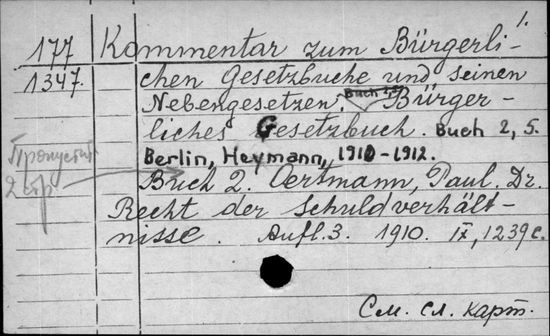 1.
177 Kommentar zum Bürgerli-
1347. chen Gesetzbuche und seinen
Nebengesetzen. Buch 2,5. Bürger-
liches Gesetzbuch. Buch 2, 5.
Berlin, Heymann, 1910-1912.
Пропустить
2 стр
Buch 2. Oertmann, Paul. Dr.
Recht der Schuldverhält-
nisse. Aufl. 3. 1910. IX, 1239 с.
См. сл. карт.